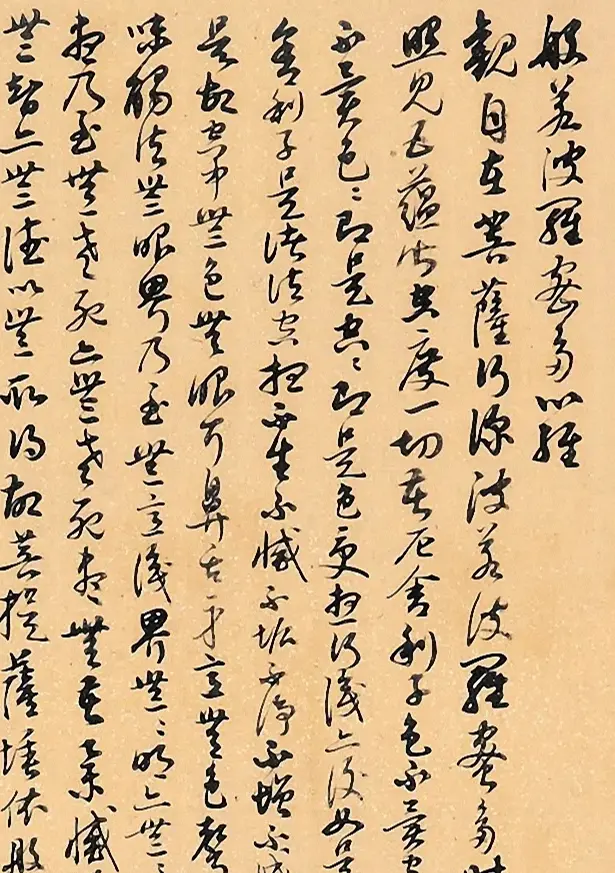 般若波羅蜜多心經
觀自在菩薩行深波若波羅蜜多時
照見五蘊皆空度一切苦厄舍利子色不異空
不異色〻即是空〻即是色受想行識亦復如是
舍利子是諸法空相不生不滅不垢不淨不增不減
是故空中無色無眼耳鼻舌身意無色聲
味觸法無眼界乃至無意識界無〻明亦無〻
盡乃至無老死亦無老死盡無苦集滅
無智亦無德以無所得故菩提薩埵依般